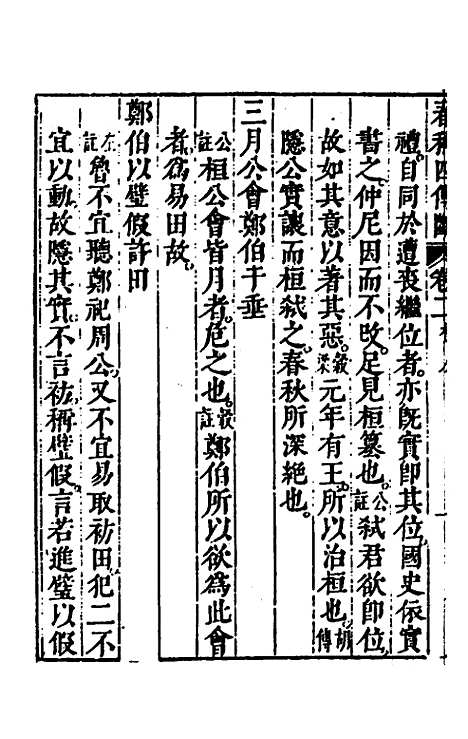 春秋四傳
卷二
禮自同於遭喪繼位者亦旣實卽其位國史依實
書之仲尼因而不改足見桓簒也公註弑君欲卽位
故如其意以著其惡穀梁元年有王所以治桓也胡傳
隱公實讓而桓弑之春秋所深絕也
三月公會鄭伯于垂
公註桓公會皆月者危之也穀註鄭伯所以欲爲此會
者爲易田故
鄭伯以璧假許田
左註魯不宜聽鄭祀周公又不宜易取祊田犯二不
宜以動故隱其實不言祊稱璧假言若進璧以假